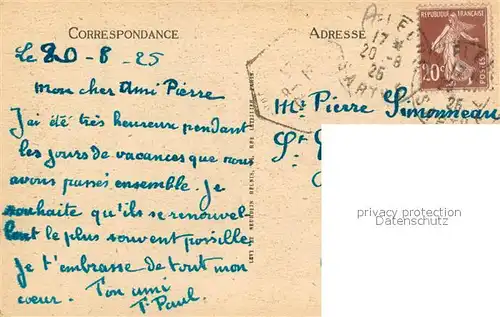 CORRESPONDANCE
ADRESSE
RÉPUBLIQUE FRANÇAISE
20c
POSTES
17
20-8
25
SARTHE
Le 20-8-25
Mon cher Ami Pierre
J'ai été très heureux pendant
les jours de vacances que nous
avons passés ensemble. Je
souhaite qu'ils se renouvel
lent le plus souvent possible
Je t'embrasse de tout mon
coeur. Ton ami
P. Paul.
Mr Pierre Simonneau
St
privacy protection
Datenschutz